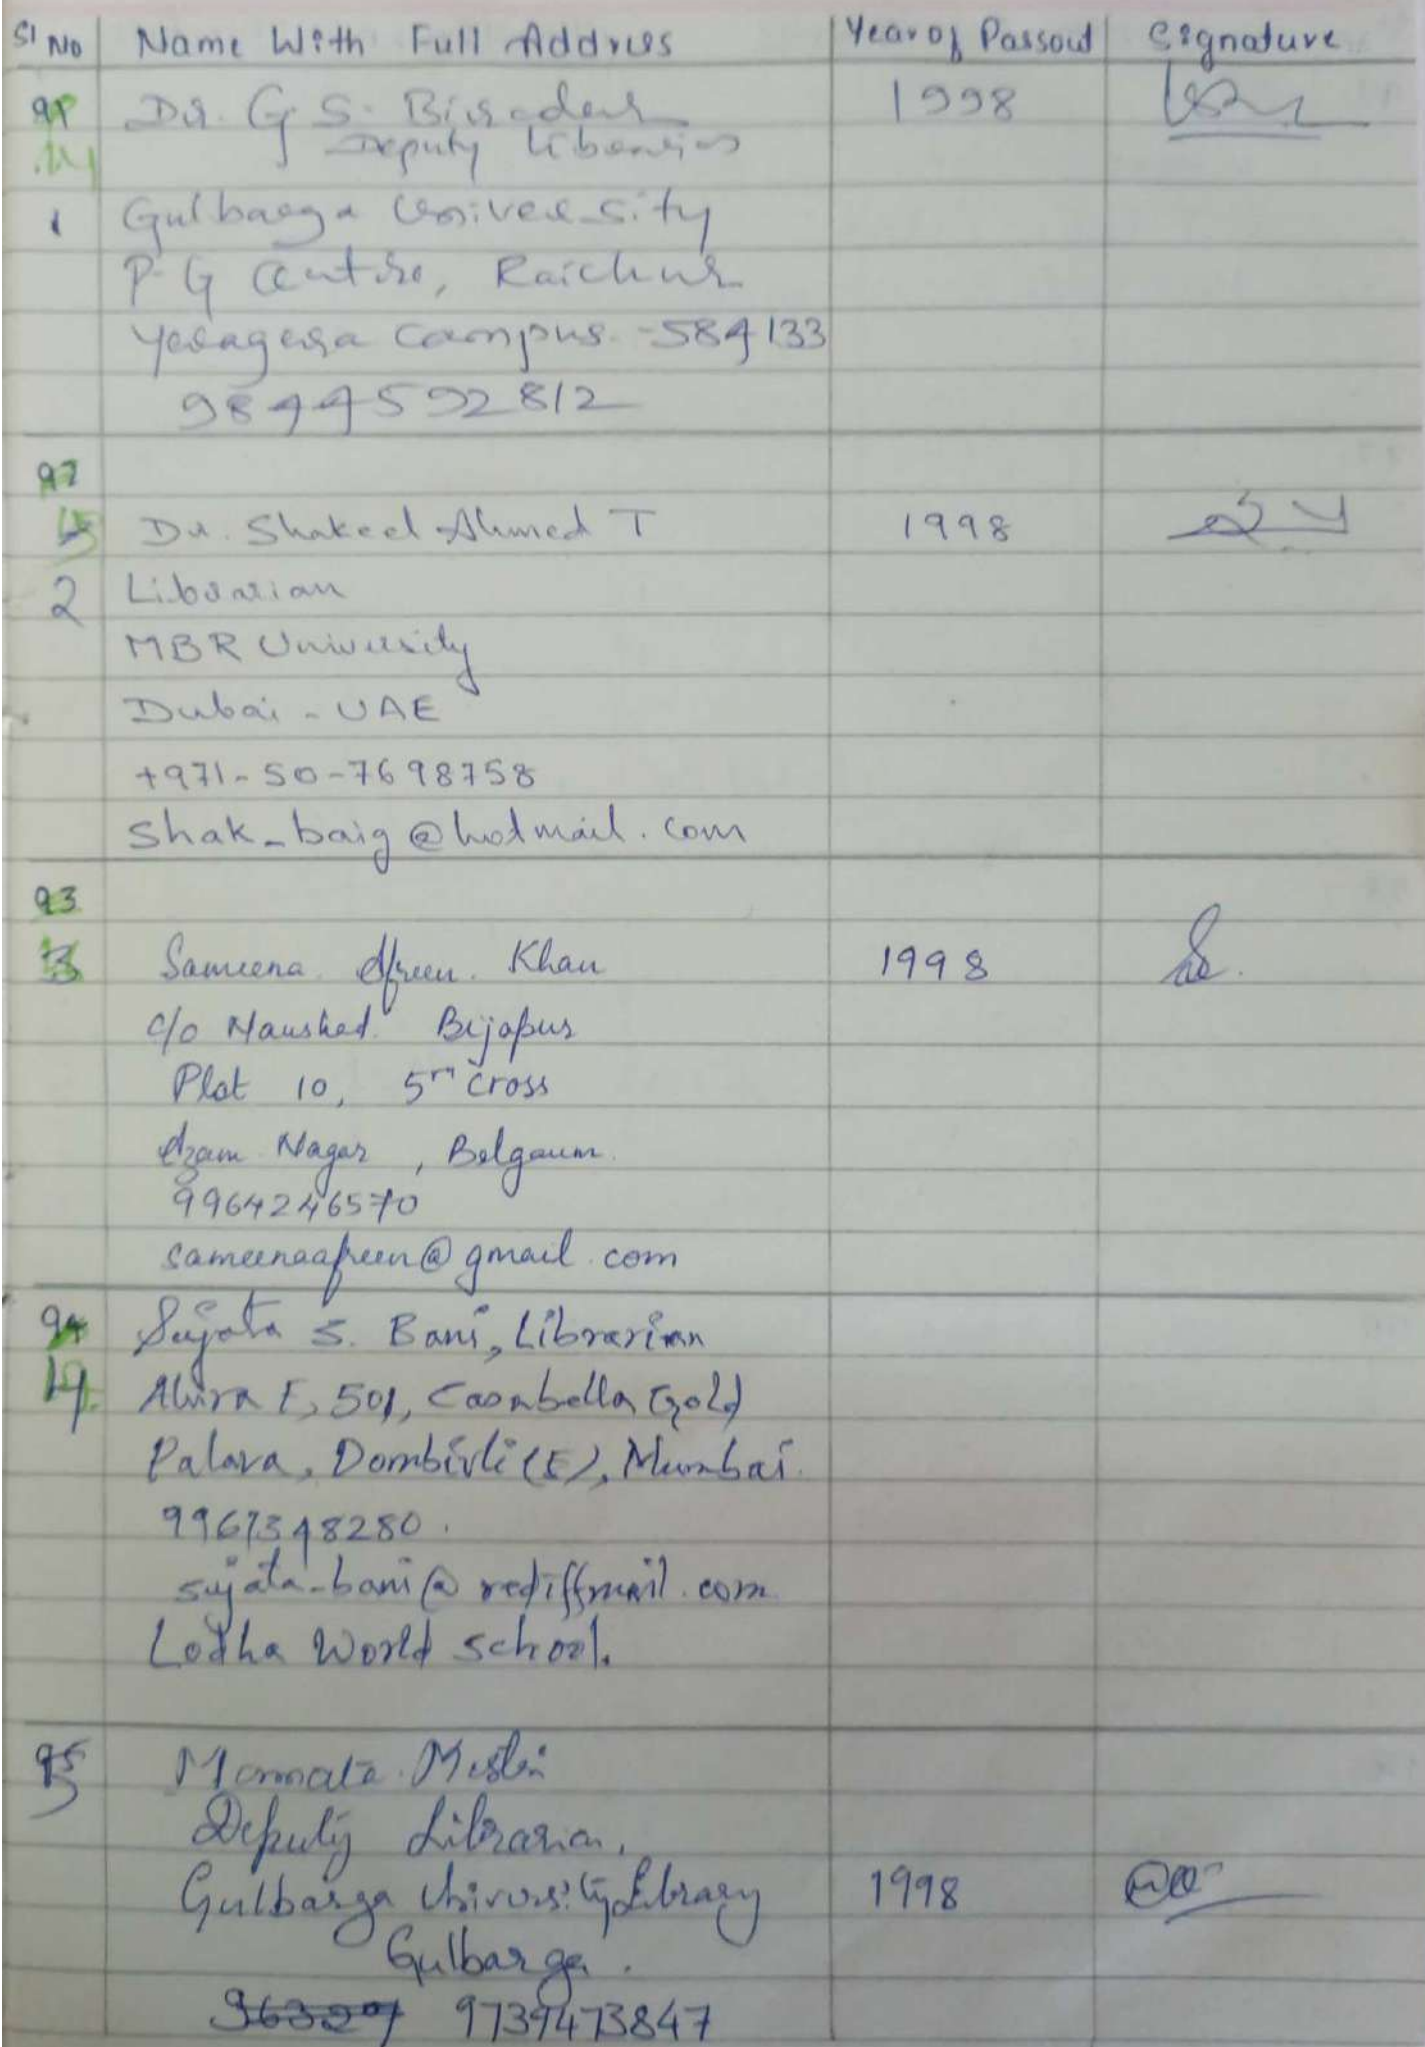 Sl No Name With Full Address Year of Passout Signature
91 Dr. G S. Biradar 1998
Deputy Librarian
1 Gulbarga University
P G Centre, Raichur
Yeragera Campus - 584133
9844592812
92
Dr. Shakeel Ahmed T 1998
2 Librarian
MBR University
Dubai - UAE
+971-50-7698758
Shak_baig@hotmail.com
93
3 Sameena Afreen Khan 1998
c/o Naushad Bijapur
Plot 10, 5th Cross
Azam Nagar, Belgaum.
9964246570
sameenaafreen@gmail.com
94 Sujata S. Bani, Librarian
4 501, Casabella Gold
Palava, Dombivli (E), Mumbai.
9967348280.
sujata-bani@rediffmail.com
Lodha World School.
95 Mamata Mistri
Deputy Librarian,
Gulbarga University Library 1998
Gulbarga.
9739473847